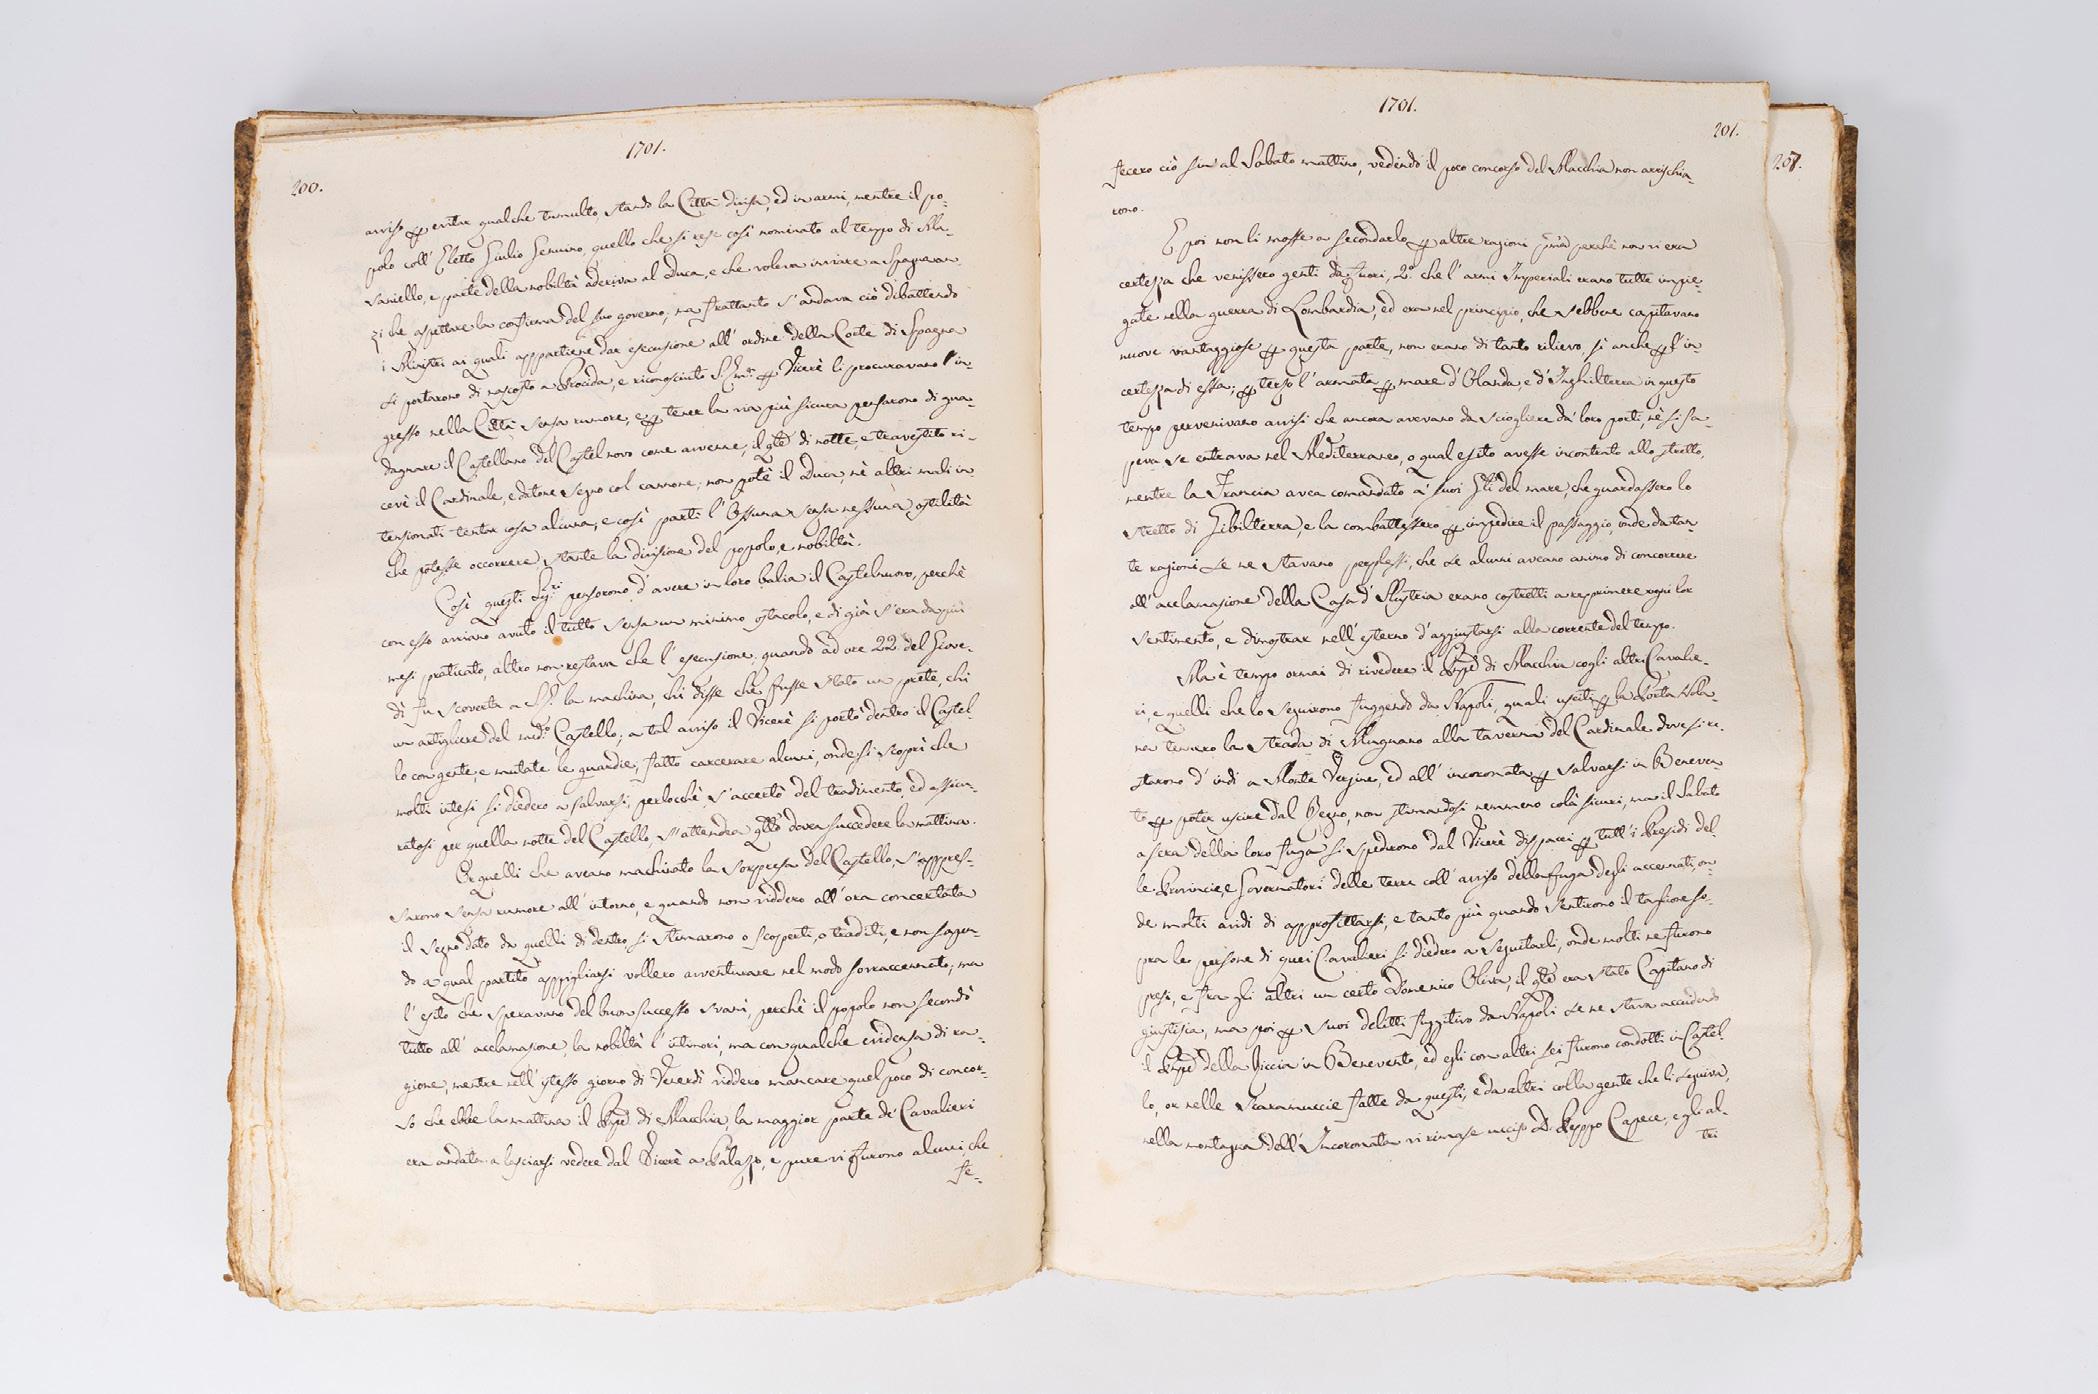 1701.
200.
avviso per evitar qualche tumulto, stando la Città divisa, ed in armi, mentre il po-
polo coll' Eletto Giulio Genuino, quello che si rese così nominato al tempo di Ma-
saniello, e parte della nobiltà aderiva al Duca, e che voleva inviare a Spagna an-
zi che aspettare la conferma del suo governo; ma frattanto s'andava ciò dibattendo
i Ministri ai quali appartiene dar esecuzione all' ordine della Corte di Spagna
si portarono di nascosto a Procida, e riconosciuto S. Em.ª per Vicerè li procuravano l'in-
gresso nella Città senza rumore, e per tener la via più sicura pensarono di gua-
dagnare il Castellano del Castel novo come avvenne, il qle di notte, e travestito ri-
cevè il Cardinale, e datone segno col cannone, non potè il Duca, nè altri mali in-
tenzionati tentar cosa alcuna, e così partì l' Ossuna senza nessuna ostilità
che potesse occorrere, stante la divisione del popolo, e nobiltà.
Così questi Sig.ri pensorono d' avere in loro balia il Castelnuovo, perchè
con esso avriano avuto il tutto senza un minimo ostacolo, e di già s'era da più
mesi praticato, altro non restava che l' esecuzione, quando ad ore 22 del Giove-
dì fu scoverta a S.E. la machina, chi disse che fusse stato un prete, chi
un artigliere del med.º Castello; a tal avviso il Vicerè si portò dentro il Castel-
lo con gente, e mutate le guardie, fatto carcerare alcuni, onde si scoprì che
molti intesi si diedero a salvarsi, perlocchè s'accertò del tradimento, ed assicu-
ratosi per quella notte del Castello, s'attendea qllo dovea succedere la mattina.
Or quelli che aveano machinato la sorpresa del Castello, s'appres-
sarono senza rumore all' intorno, e quando non viddero all' ora concertata
il segno dato da quelli di dentro, si stimarono o scoperti, o traditi, e non sapen-
do a qual partito appigliarsi vollero avventurare nel modo sorraccennato; ma
l' esito che speravano del buon successo svanì, perchè il popolo non secondò
tutto all' acclamazione, la nobiltà l' intimorì, ma con qualche evidenza di ra-
gione, mentre nell' istesso giorno di Venerdì viddero mancare quel poco di concor-
so che ebbe la mattina il Pnpe di Macchia, la maggior parte de' Cavalieri
era andata a lasciarsi vedere dal Vicerè a Palazo, e pure vi furono alcuni, che
fe-
1701.
201.
207.
fecero ciò sin al Sabato mattino, vedendo il poco concorso del Macchia non arrischia-
rono.
E poi non li mosse a secondarlo per altre ragioni pria perchè non vi era
certezza che venissero genti da fuori, 2.º che l' armi Imperiali erano tutte impie-
gate nella guerra di Lombardia, ed era nel principio, che sebbene capitavano
nuove vantaggiose per questa parte, non erano di tanto rilievo, sì anche per l'in-
certezza di essa; per terzo l' armata per mare d' Olanda, e d' Inghilterra in questo
tempo pervenivano avvisi che ancora avevano da sciogliere da' loro porti, nè si sa-
peva se entrava nel Mediterraneo, o qual esito avesse incontrato allo stretto,
mentre la Francia avea comandato a' suoi Gnli del mare, che guardassero lo
stretto di Gibilterra, e la combattessero per impedire il passaggio, onde da tan-
te ragioni se ne stavano perplessi, che se alcuni aveano animo di concorrere
all' acclamazione della Casa d' Austria erano costretti a reprimere ogni lor
sentimento, e dimostrar nell' esterno d' aggiustarsi alla corrente del tempo.
Ma è tempo ormai di rivedere il Pnpe di Macchia cogli altri Cavalie-
ri, e quelli che lo seguirono fuggendo da Napoli, quali usciti per la Porta Nola-
na tennero la strada di Mugnano alla taverna del Cardinale dove si re-
starono d' indi a Monte Vergine, ed all' incoronata per salvarsi in Beneven-
to per poter uscire dal Regno, non stimandosi nemmeno colà sicuri, ma il Sabato
a sera della loro fuga si spedirono dal Vicerè dispacci per tutt' i Presidi del-
le Provincie, e Governatori delle terre coll' avviso della fuga degli accennati, on-
de molti avidi di approfittarsi, e tanto più quando sentirono il taglione so-
pra le persone di quei Cavalieri si diedero a seguitarli, onde molti ne furono
presi, e fra gli altri un certo Domenico Oliva, il qle era stato Capitano di
giustizia, ma poi per suoi delitti fuggitivo da Napoli se ne stava accudendo
il Pnpe della Riccia in Benevento, ed egli con altri sei furono condotti in Castel-
lo, or nelle scaramuccie fatte da questi, e da altri colla gente che li seguiva,
nella montagna dell' Incoronata vi rimase ucciso D. Peppo Capece, e gli al-
tri